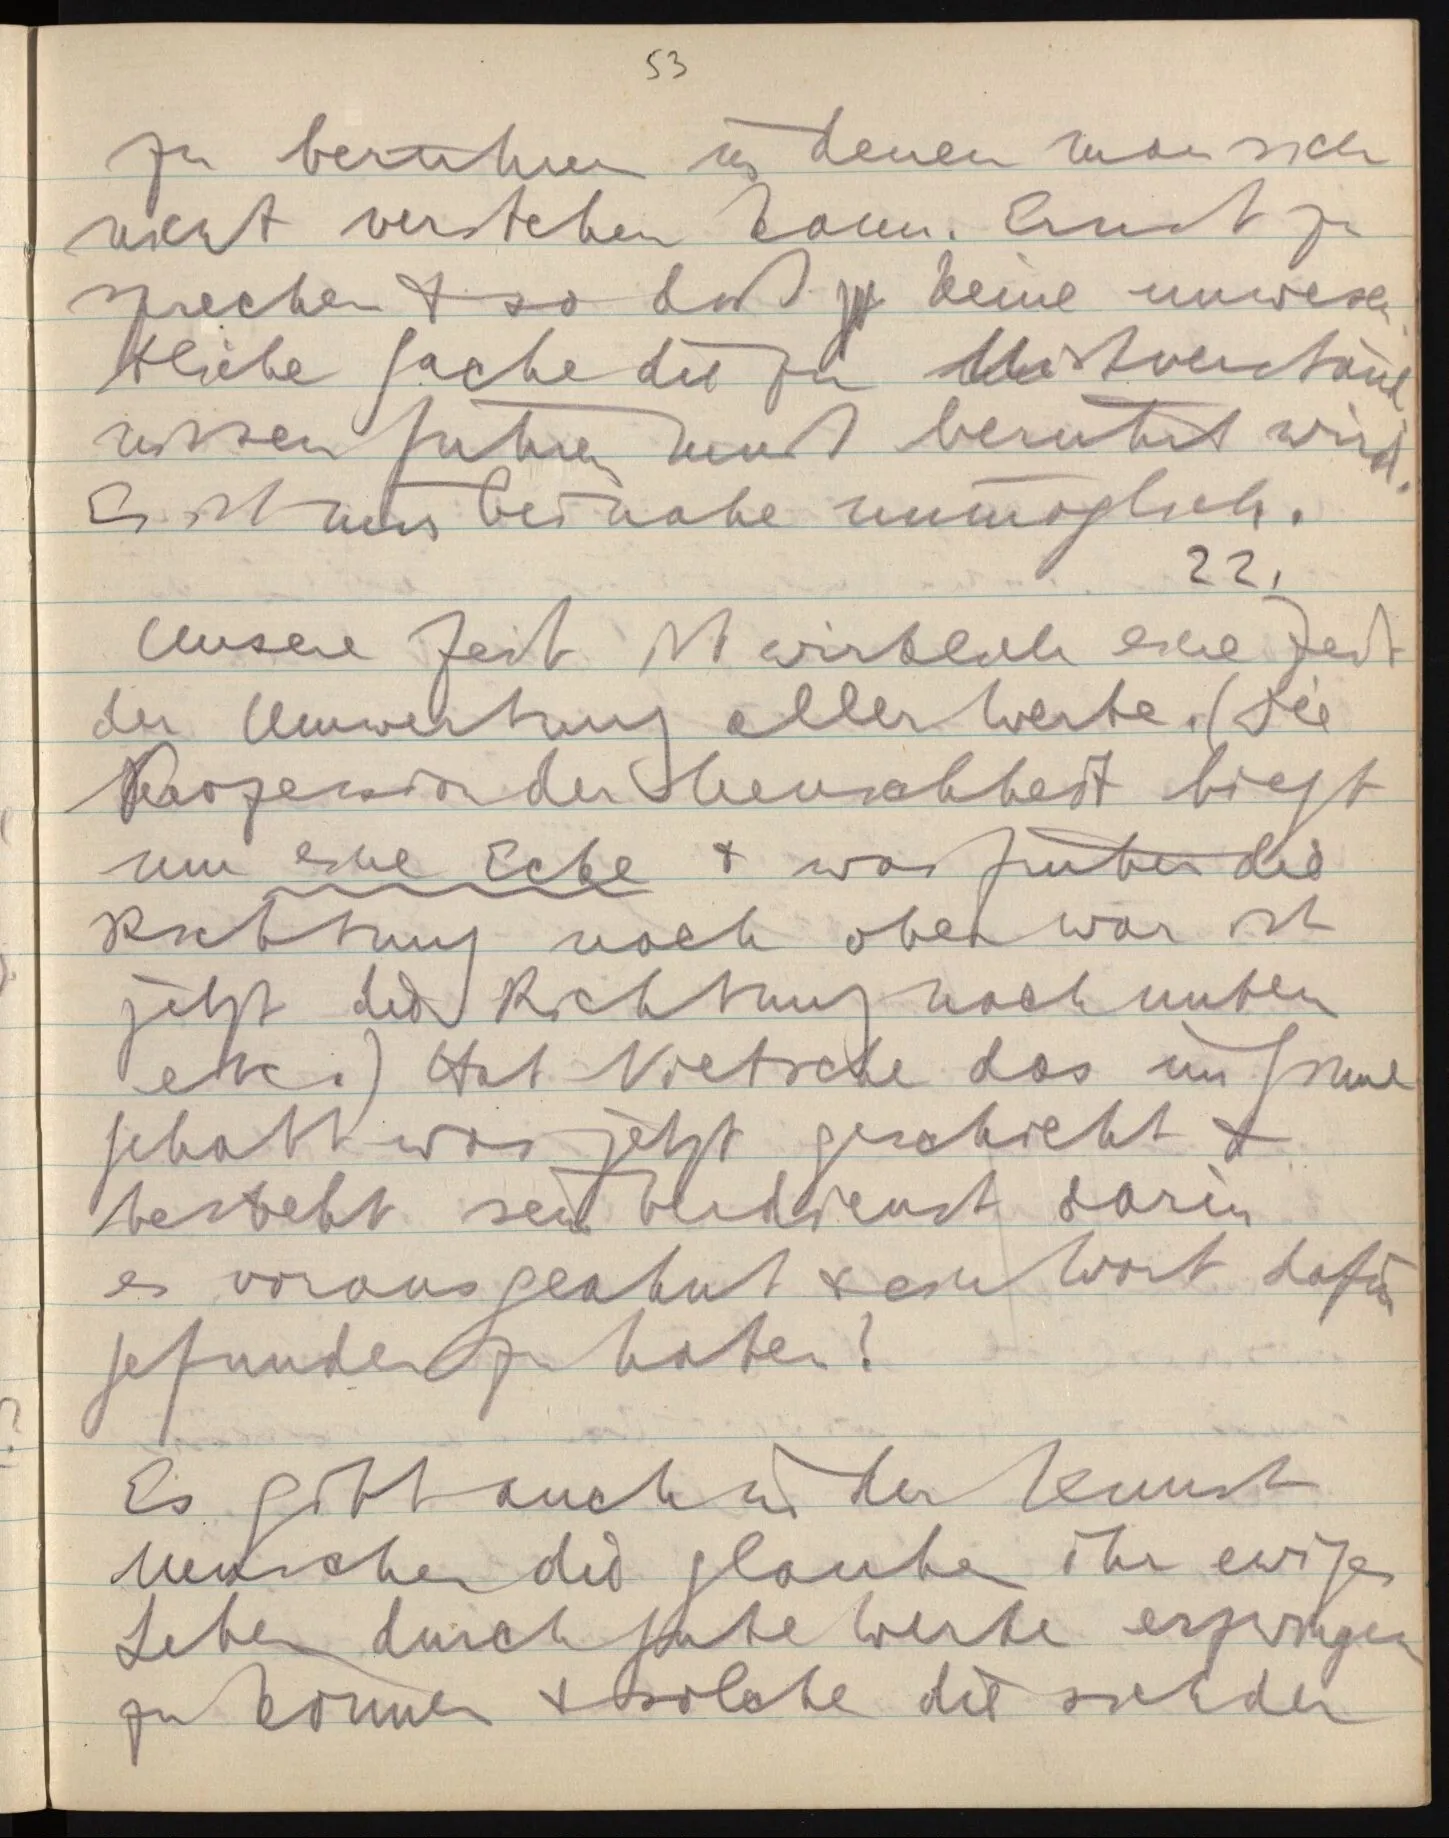 53
zu berühren in denen man sich
nicht verstehen kann. Ernst zu
sprechen & so daß keine unwesen-
tliche Sache die zu Mißverständ-
nissen führen muß berührt wird.
Es ist mir beinahe unmöglich.
22.
Unsere Zeit ist wirklich eine Zeit
der Umwertung aller Werte. (Die
Prozession der Menschheit biegt
um eine Ecke & was früher die
Richtung nach oben war ist
jetzt die Richtung nach unten
etc.) Hat Nietsche das im Sinne
gehabt was jetzt geschieht &
besteht sein Verdienst darin
es vorausgeahnt & ein Wort dafür
gefunden zu haben?
Es gibt auch in der Kunst
Menschen die glauben ihr ewiges
Leben durch gute Werke erzwingen
zu können & solche die sich der